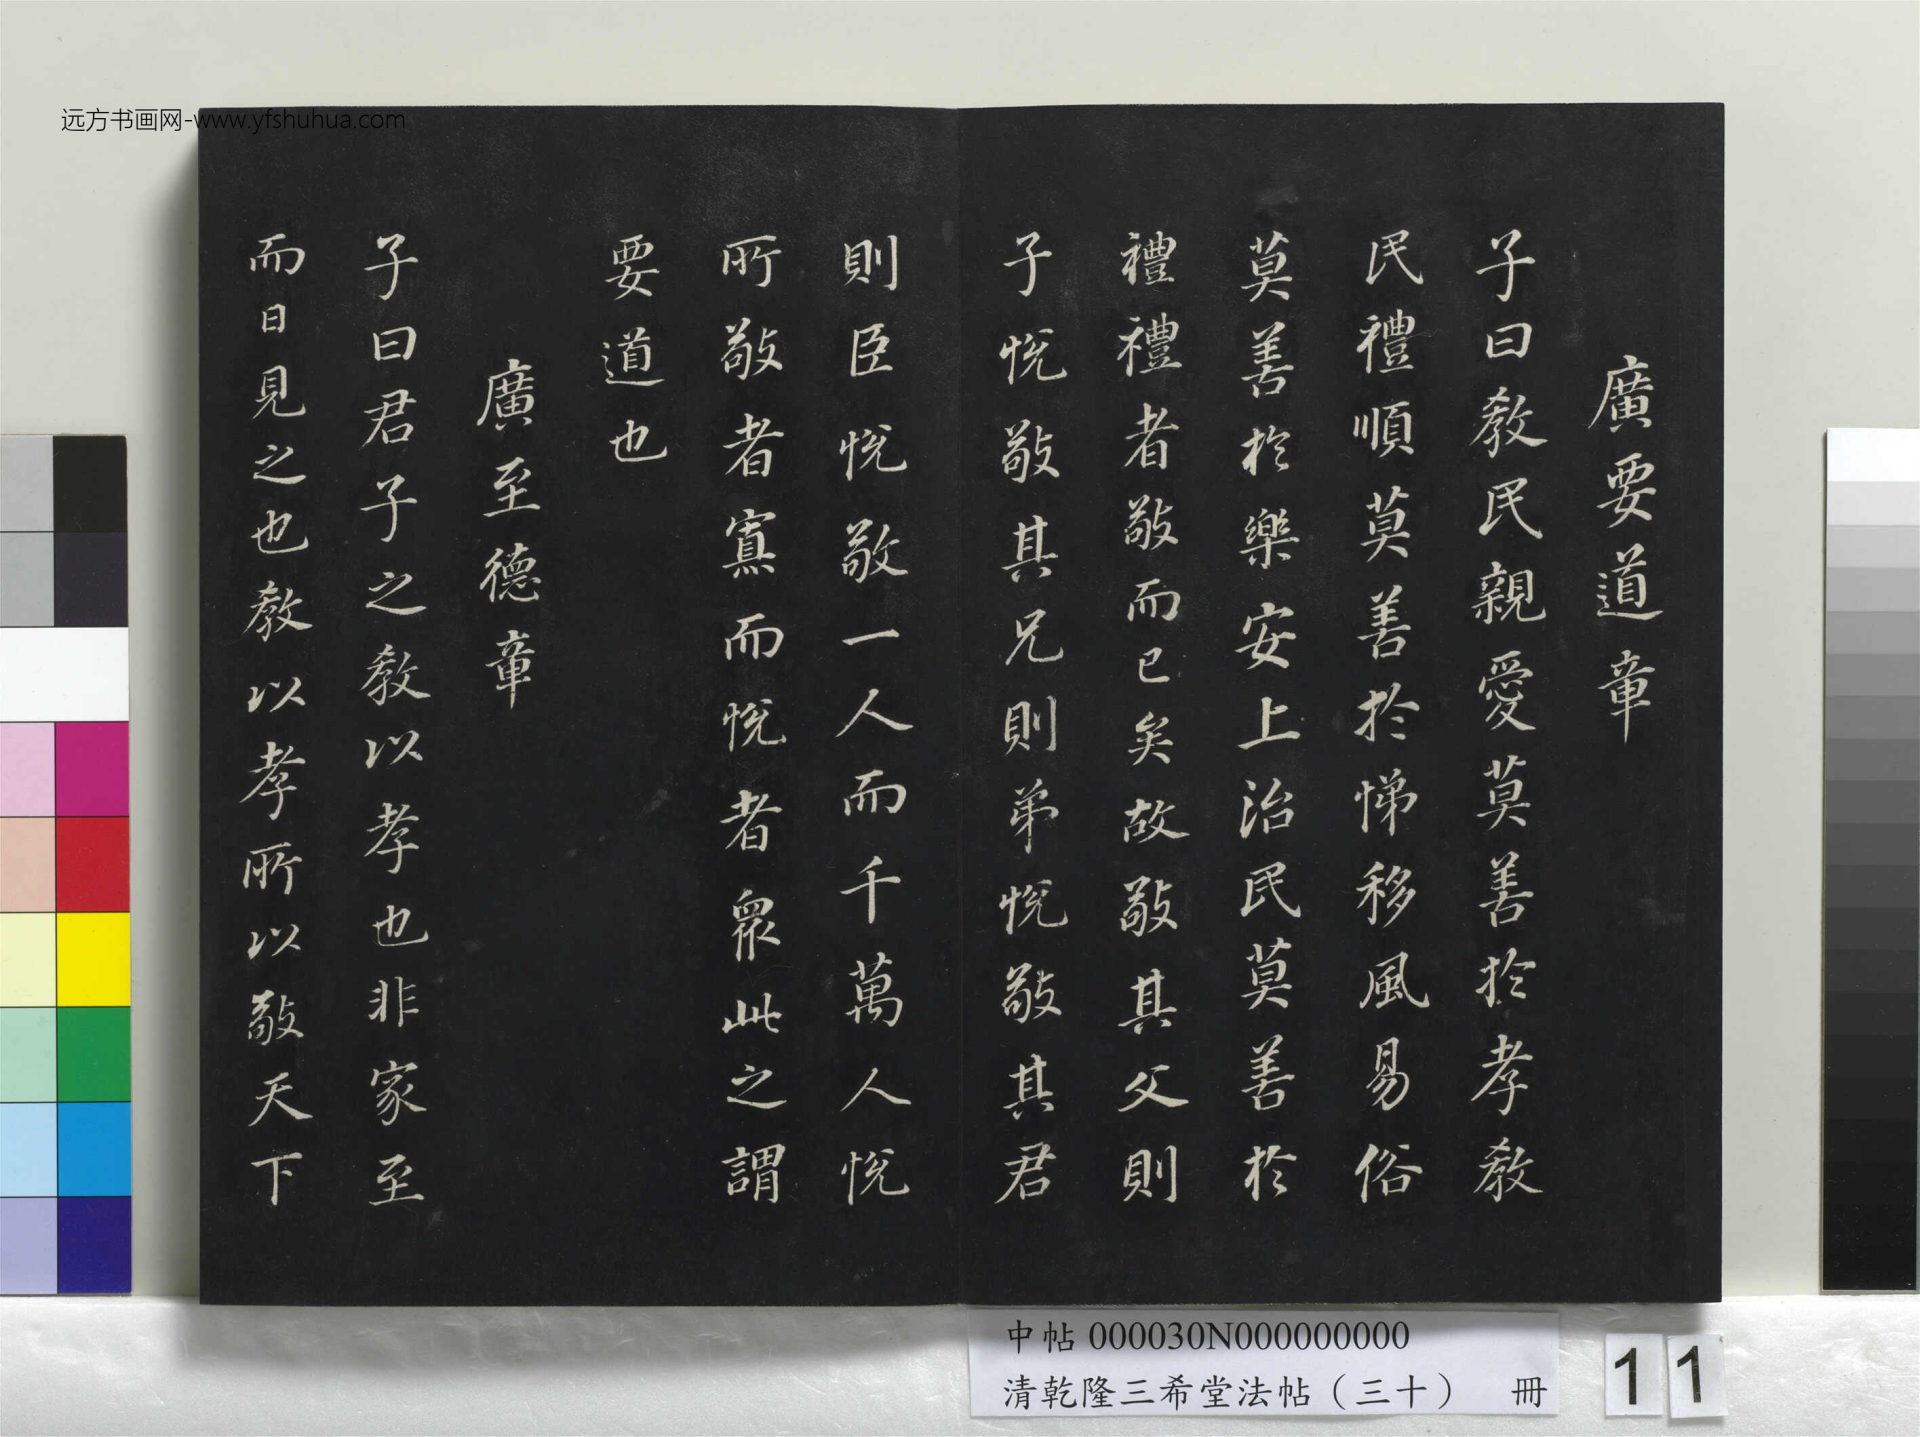 远方书画网-www.yfshuhua.com
廣要道章
子曰教民親愛莫善於孝教
民禮順莫善於悌移風易俗
莫善於樂安上治民莫善於
禮禮者敬而已矣故敬其父則
子悅敬其兄則弟悅敬其君
則臣悅敬一人而千萬人悅
所敬者寡而悅者衆此之謂
要道也
廣至德章
子曰君子之教以孝也非家至
而日見之也教以孝所以敬天下
中帖 000030N000000000
清乾隆三希堂法帖（三十） 冊
11